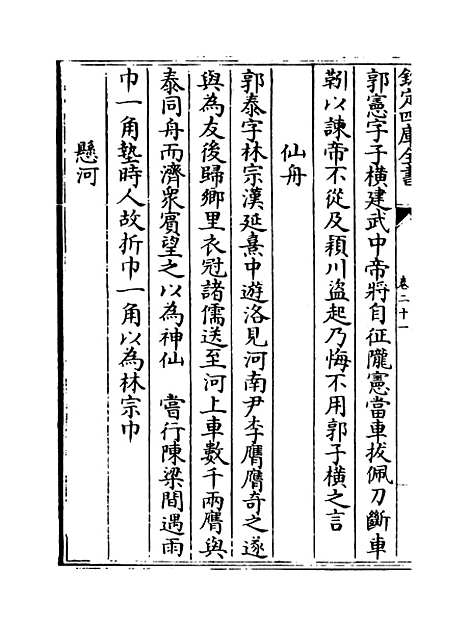 欽定四庫全書
卷二十一
郭憲字子橫建武中帝將自征隴憲當車拔佩刀斷車
靷以諫帝不從及潁川盜起乃悔不用郭子橫之言
仙舟
郭泰字林宗漢延熹中遊洛見河南尹李膺膺奇之遂
與為友後歸鄉里衣冠諸儒送至河上車數千兩膺與
泰同舟而濟衆賓望之以為神仙　嘗行陳梁間遇雨
巾一角墊時人故折巾一角以為林宗巾
懸河